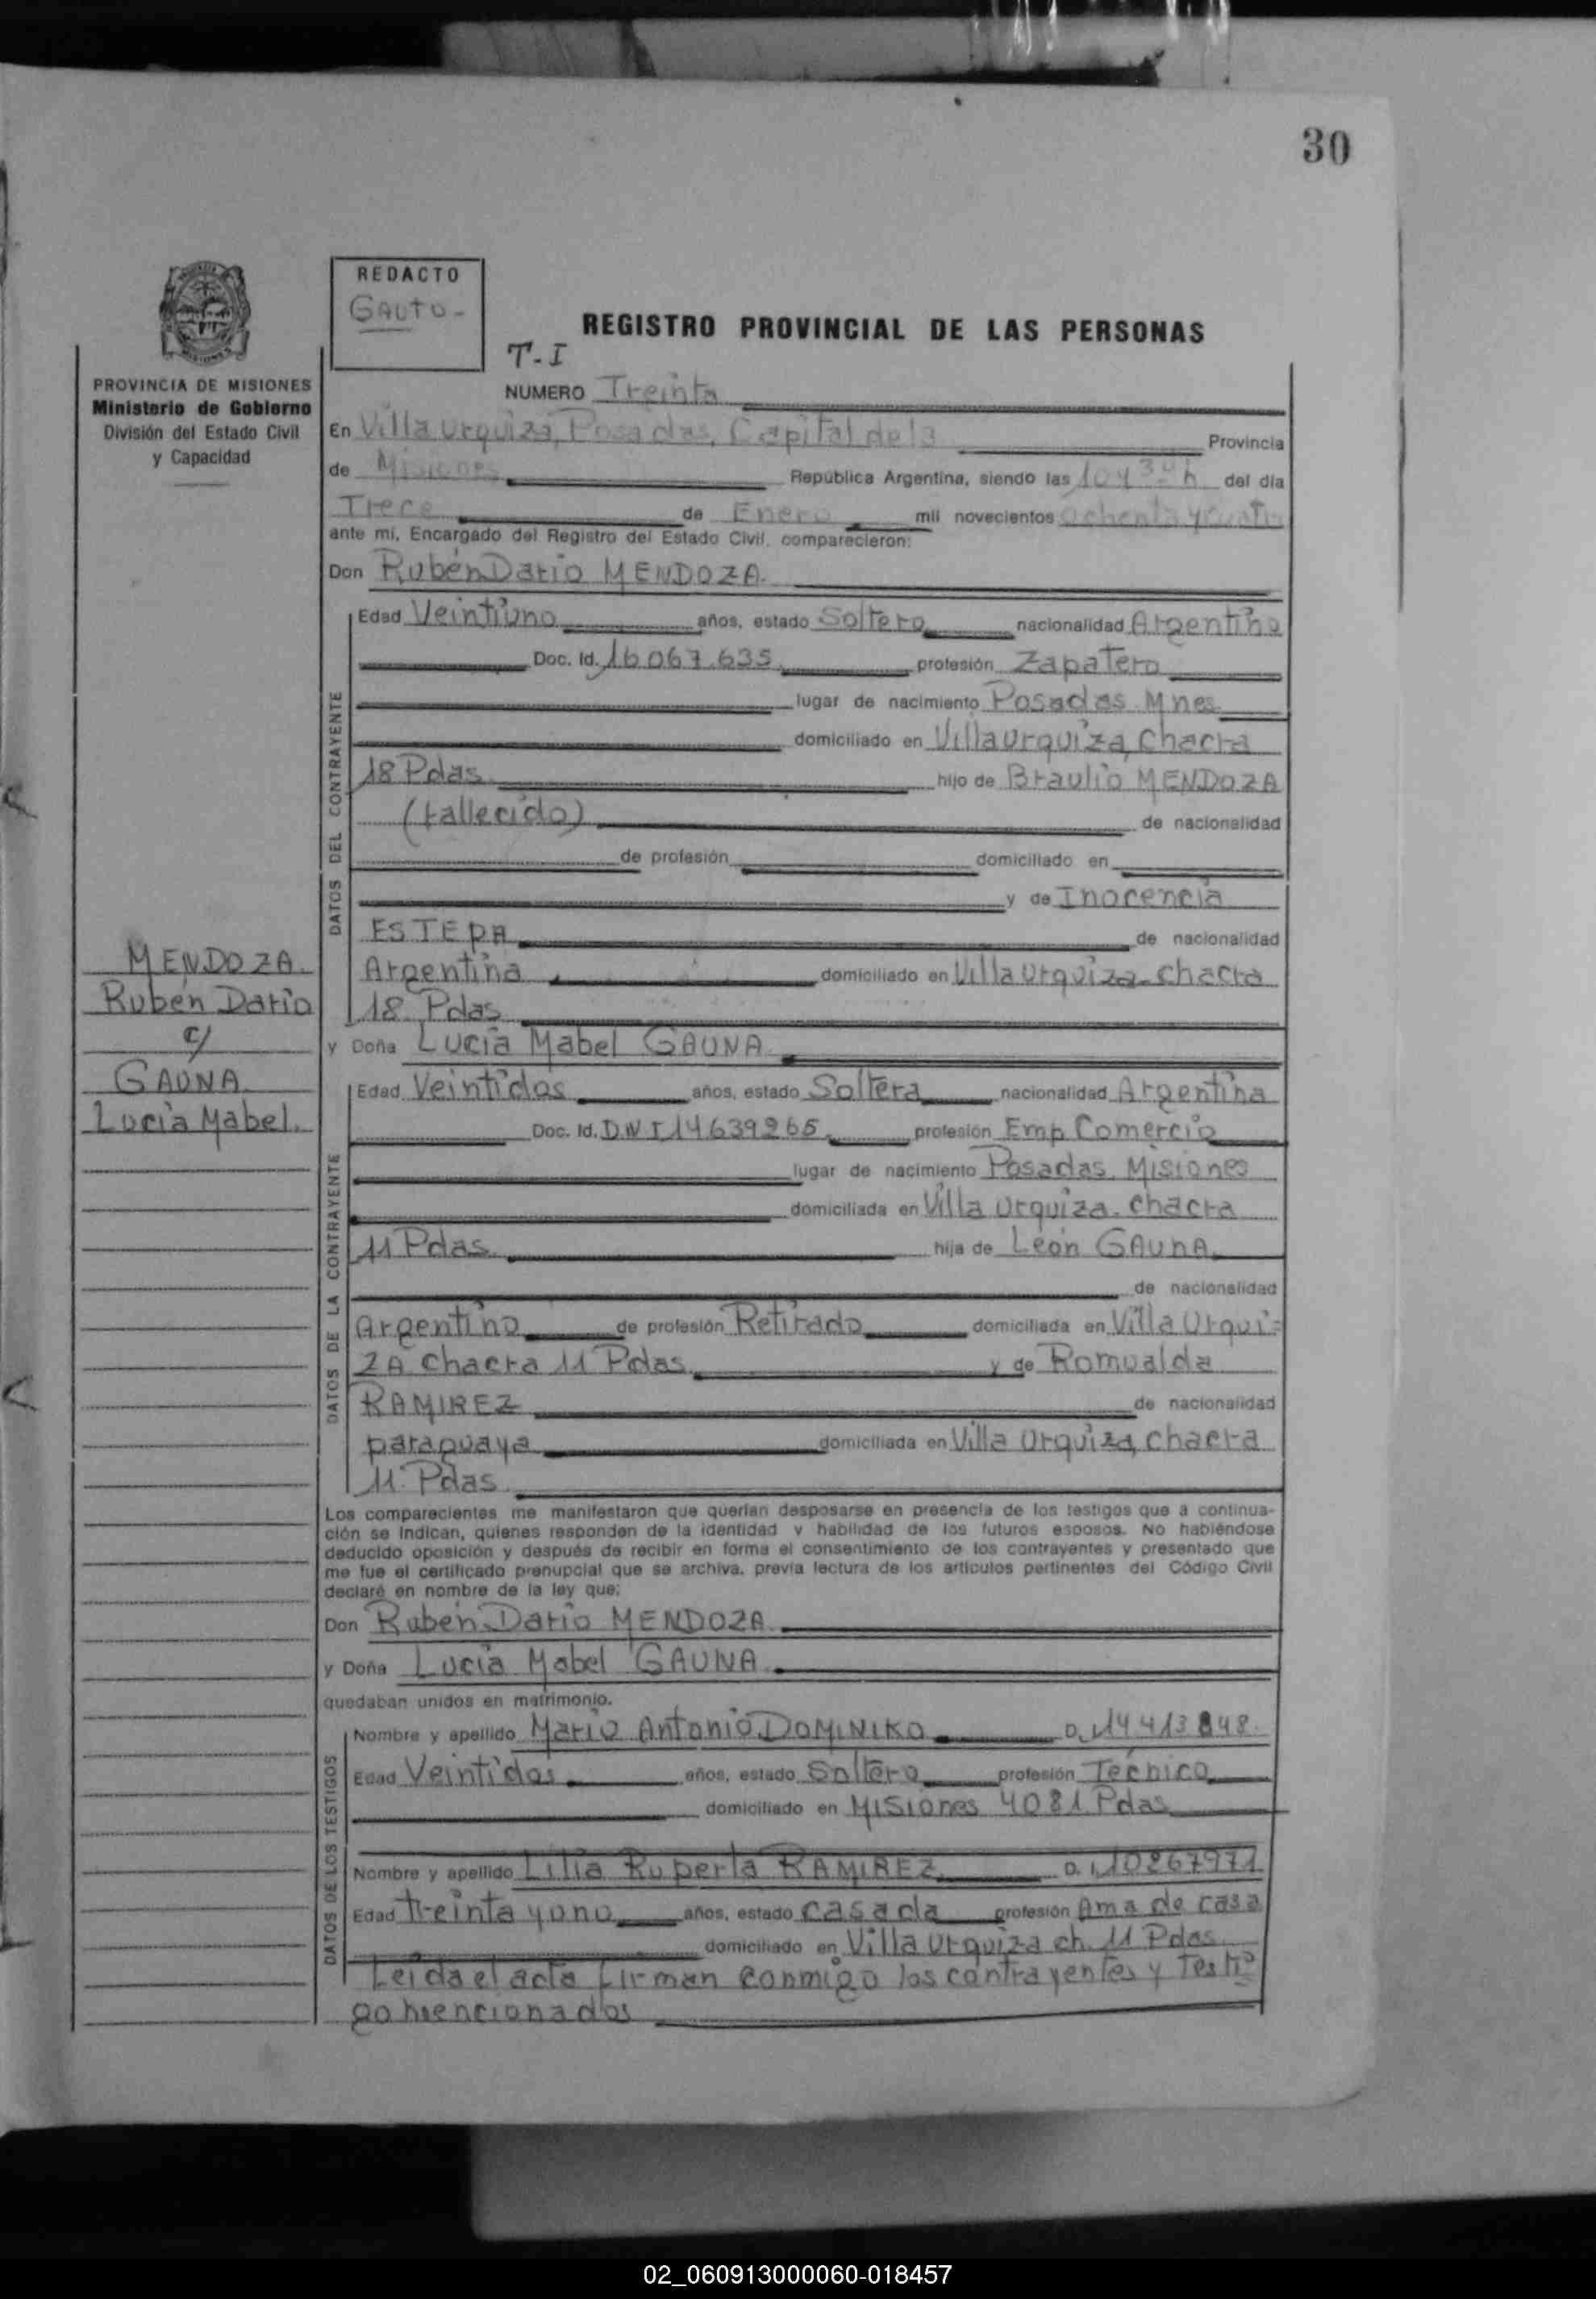 30
REDACTO
GAUTO-
REGISTRO PROVINCIAL DE LAS PERSONAS
T-I
PROVINCIA DE MISIONES
Ministerio de Gobierno
División del Estado Civil
y Capacidad
NUMERO Treinta
En Villa Urquiza, Posadas, Capital de la Provincia
de Misiones República Argentina, siendo las del día
Trece de Enero mil novecientos ochenta y cuatro
ante mi, Encargado del Registro del Estado Civil, comparecieron:
Don Rubén Dario MENDOZA.
DATOS DEL CONTRAYENTE
Edad Veintiuno años, estado Soltero nacionalidad Argentino
Doc. Id. 16 067.635 profesión Zapatero
lugar de nacimiento Posadas. Mnes
domiciliado en Villa Urquiza, chacra
18 Pdas hijo de Braulio MENDOZA
(fallecido) de nacionalidad
de profesión domiciliado en
y de Inocencia
ESTEPA de nacionalidad
Argentina domiciliado en Villa Urquiza chacra
18 Pdas
MENDOZA.
Rubén Dario
c/
GAUNA
Lucia Mabel.
y Doña Lucia Mabel GAUNA
DATOS DE LA CONTRAYENTE
Edad Veintidos años, estado Soltera nacionalidad Argentina
Doc. Id. DNI 14639265 profesión Emp Comercio
lugar de nacimiento Posadas. Misiones
domiciliada en Villa Urquiza. chacra
11 Pdas hija de León GAUNA
de nacionalidad
Argentino de profesión Retirado domiciliada en Villa Urqui-
ZA chacra 11 Pdas y de Romualda
RAMIREZ de nacionalidad
paraguaya domiciliada en Villa Urquiza, chacra
11 Pdas
Los comparecientes me manifestaron que querían desposarse en presencia de los testigos que a continua-
ción se indican, quienes responden de la identidad y habilidad de los futuros esposos. No habiéndose
deducido oposición y después de recibir en forma el consentimiento de los contrayentes y presentado que
me fue el certificado prenupcial que se archiva, previa lectura de los artículos pertinentes del Código Civil
declaré en nombre de la ley que:
Don Rubén Dario MENDOZA
y Doña Lucia Mabel GAUNA
quedaban unidos en matrimonio.
DATOS DE LOS TESTIGOS
Nombre y apellido Mario Antonio DOMINIKO D.I. 14413848.
Edad Veintidos años, estado Soltero profesión Técnico
domiciliado en Misiones 4081 Pdas
Nombre y apellido Ruperta RAMIREZ D.I. 10267971
Edad treinta y uno años, estado casada profesión Ama de casa
domiciliado en Villa Urquiza ch. 11 Pdas
Leida el acta firman conmigo los contrayentes y testi
mencionados
02_060913000060-018457